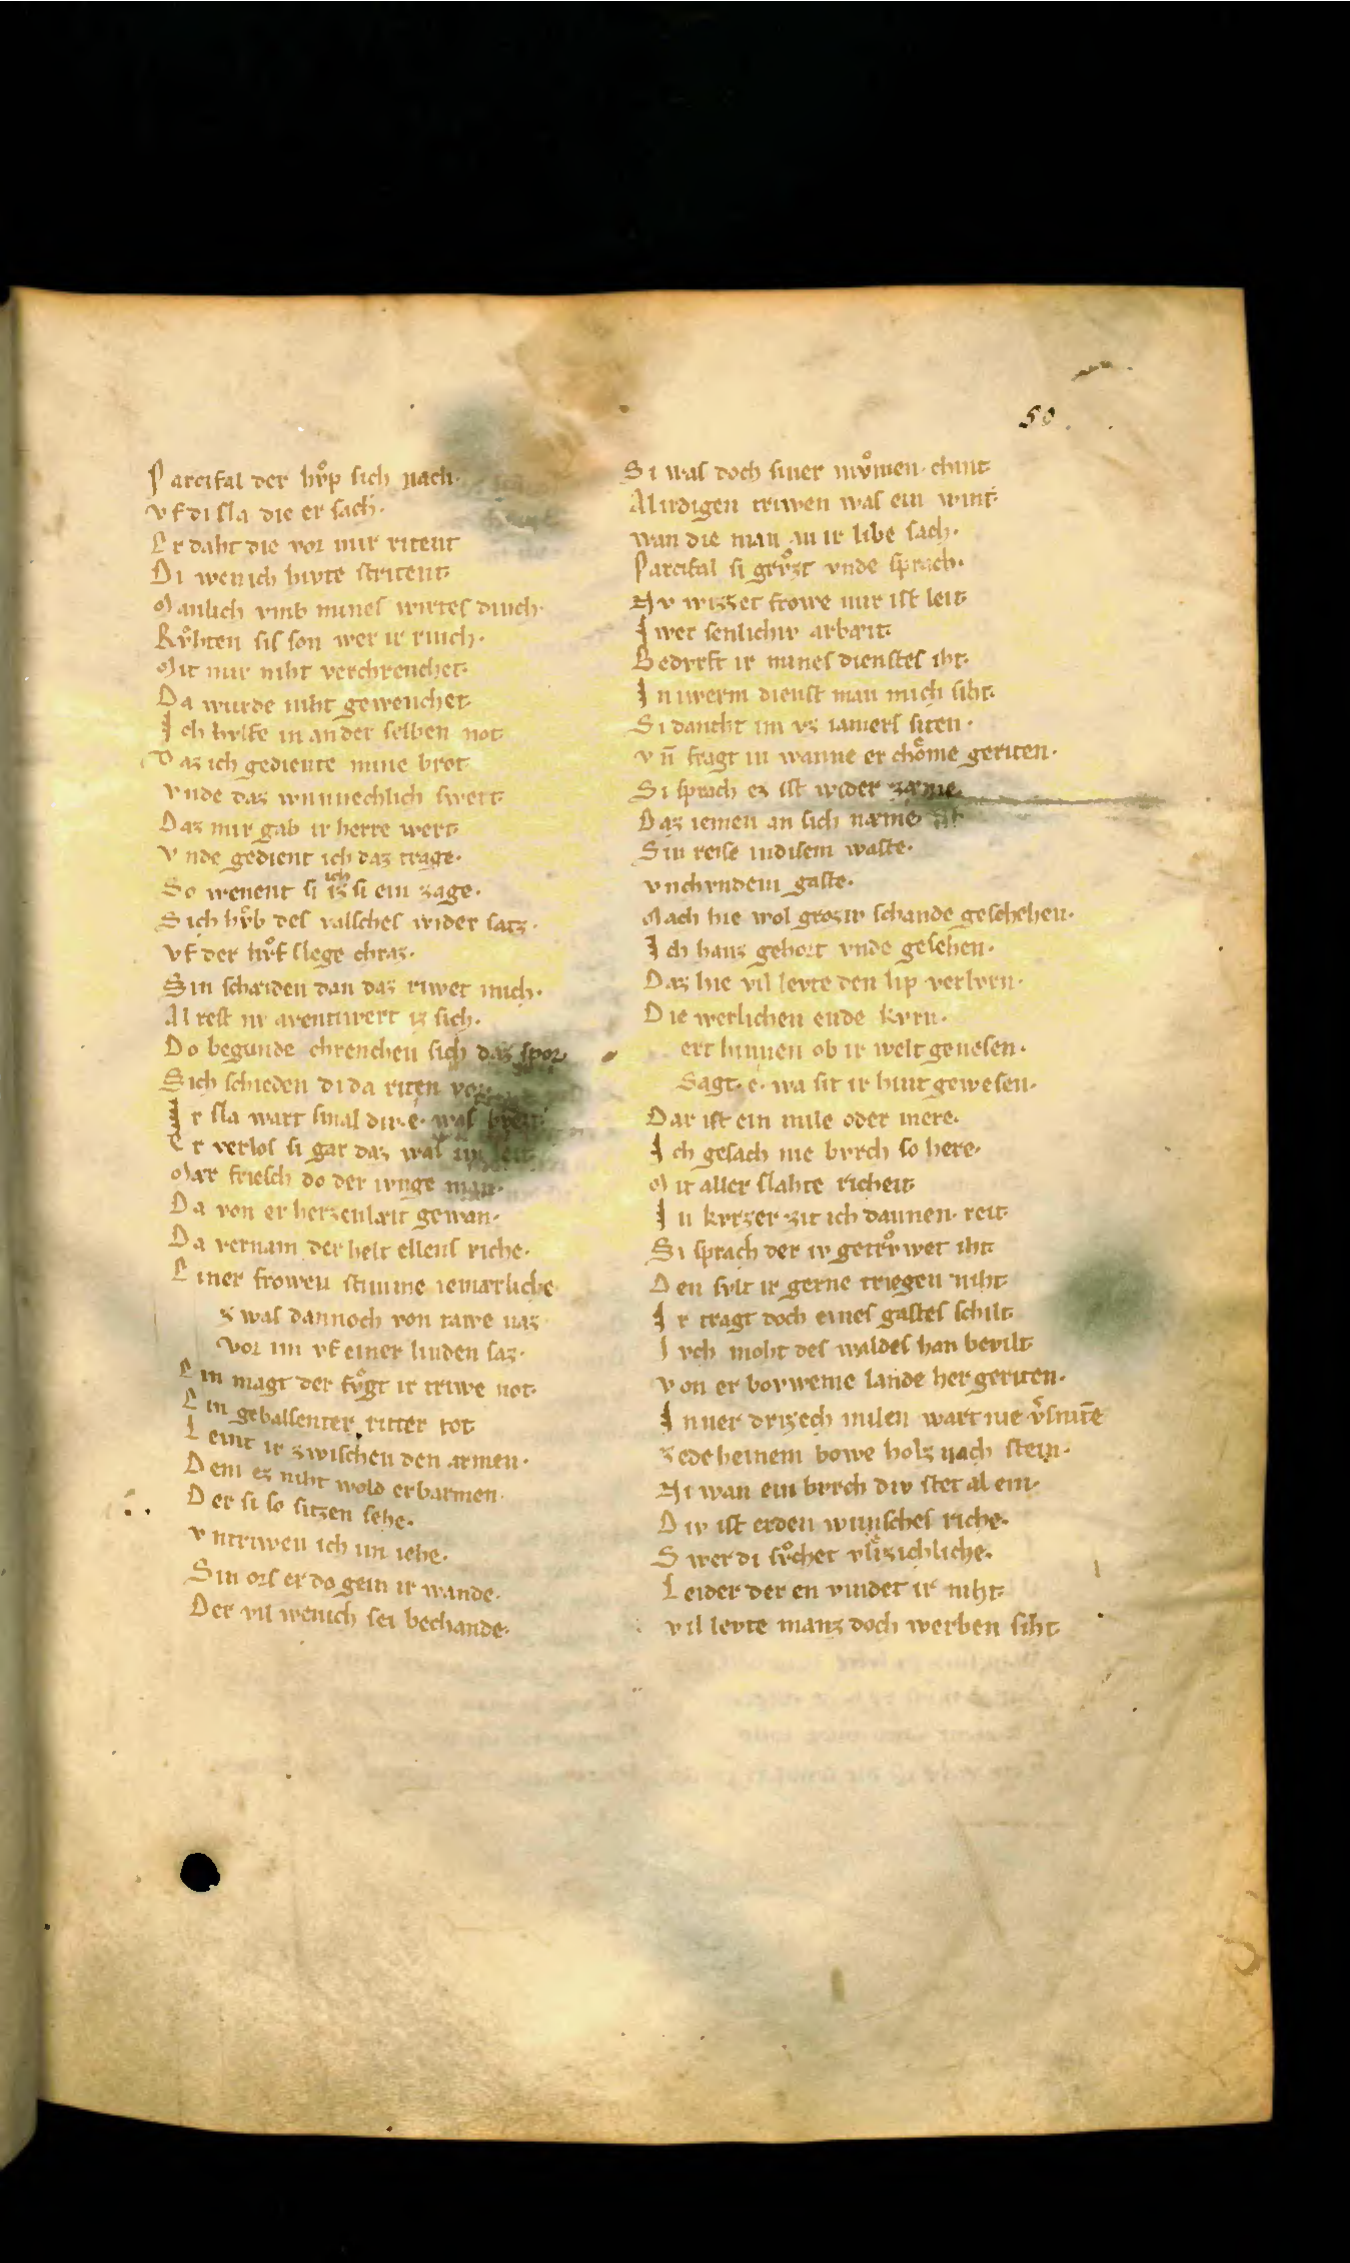 50
Parcifal der hvͦp sich nach·
vf di sla die er sach·
Er daht die vor mir ritent
Di wen ich hivte stritent·
Manlich vmb mines wirtes dinch·
Rvͦhten sis son wer ir rinch·
Mit mir niht verchrenchet·
Da wurde niht gewenchet·
Ich hvlfe in an der selben not
Daz ich gediente mine brot
vnde daz wunnechlich swert·
Daz mir gab ir herre wert·
Vnde gedient ich daz trage·
So wenent si ich iz si ein zage·
Sich hvͦb des valsches wider satz·
vf der hvͦf slege chraz·
Sin schæiden dan daz riwet mich·
Alrest nv aventivert iz sich·
Do begunde chrenchen sich daz spor·
Sich schieden di da riten vor·
Ir sla wart smal div·e· was breit·
Er verlos si gar daz was im leit·
Mær friesch do der ivnge man·
Da von er herzenlæit gewan·
Da vernam der helt ellens riche·
Einer frowen stimme iemærliche
z was dannoch von tawe naz·
vor im vf einer linden saz·
Ein magt der fvͦgt ir triwe not·
Ein gebalsenter ritter tot
Leint ir zwischen den armen·
Dem ez niht wold erbarmen·
Der si so sitzen sehe·
vntriwen ich im iehe·
Sin ors er do gein ir wande·
Der vil wenich sei bechande·
Si was doch siner mvͦmen chint·
Al irdigen triwen was ein wint·
wan die man an ir libe sach·
Parcifal si grvͦzt vnde sprach·
Nv wizzet frowe mir ist leit·
Iwer senlichiv arbæit·
Bedvrft ir mines dienstes iht·
In iwerm dienst man mich siht·
Si dancht im vz iamers siten·
vn̄ fragt in wanne er choͤme geriten·
Si sprach ez ist wider zæme
Daz iemen an sich næme
Sin reise in disem waste·
vnchvndem gaste·
Mach hie wol groziv schande geschehen·
Ich hanz gehort vnde gesehen·
Daz hie vil levte den lip verlvrn·
Die werlichen ende kvrn·
ert hinnen ob ir welt genesen·
Sagt·e· wa sit ir hint gewesen·
Dar ist ein mile oder mere·
Ich gesach nie bvrch so here·
Mit aller slahte richeit·
In kvrzer zit ich dannen reit·
Si sprach der iv getrvͦwet iht
Den svlt ir gerne triegen niht·
Ir tragt doch eines gastes schilt·
Ivch moht des waldes han bevilt·
von erbovweme lande her geriten·
Inner drizech milen wart nie v̓sniten̄
zedeheinem bowe holz nach stein·
Ni wan ein bvrch div stet al ein·
Div ist erden wunsches riche·
Swer di svͦchet vlizichliche·
Leider der en vindet ir niht·
vil levte manz doch werben siht·